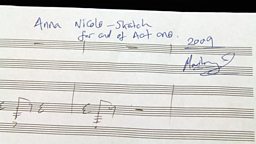 Anna Nicole - Sketch
for end of Act one.
2009